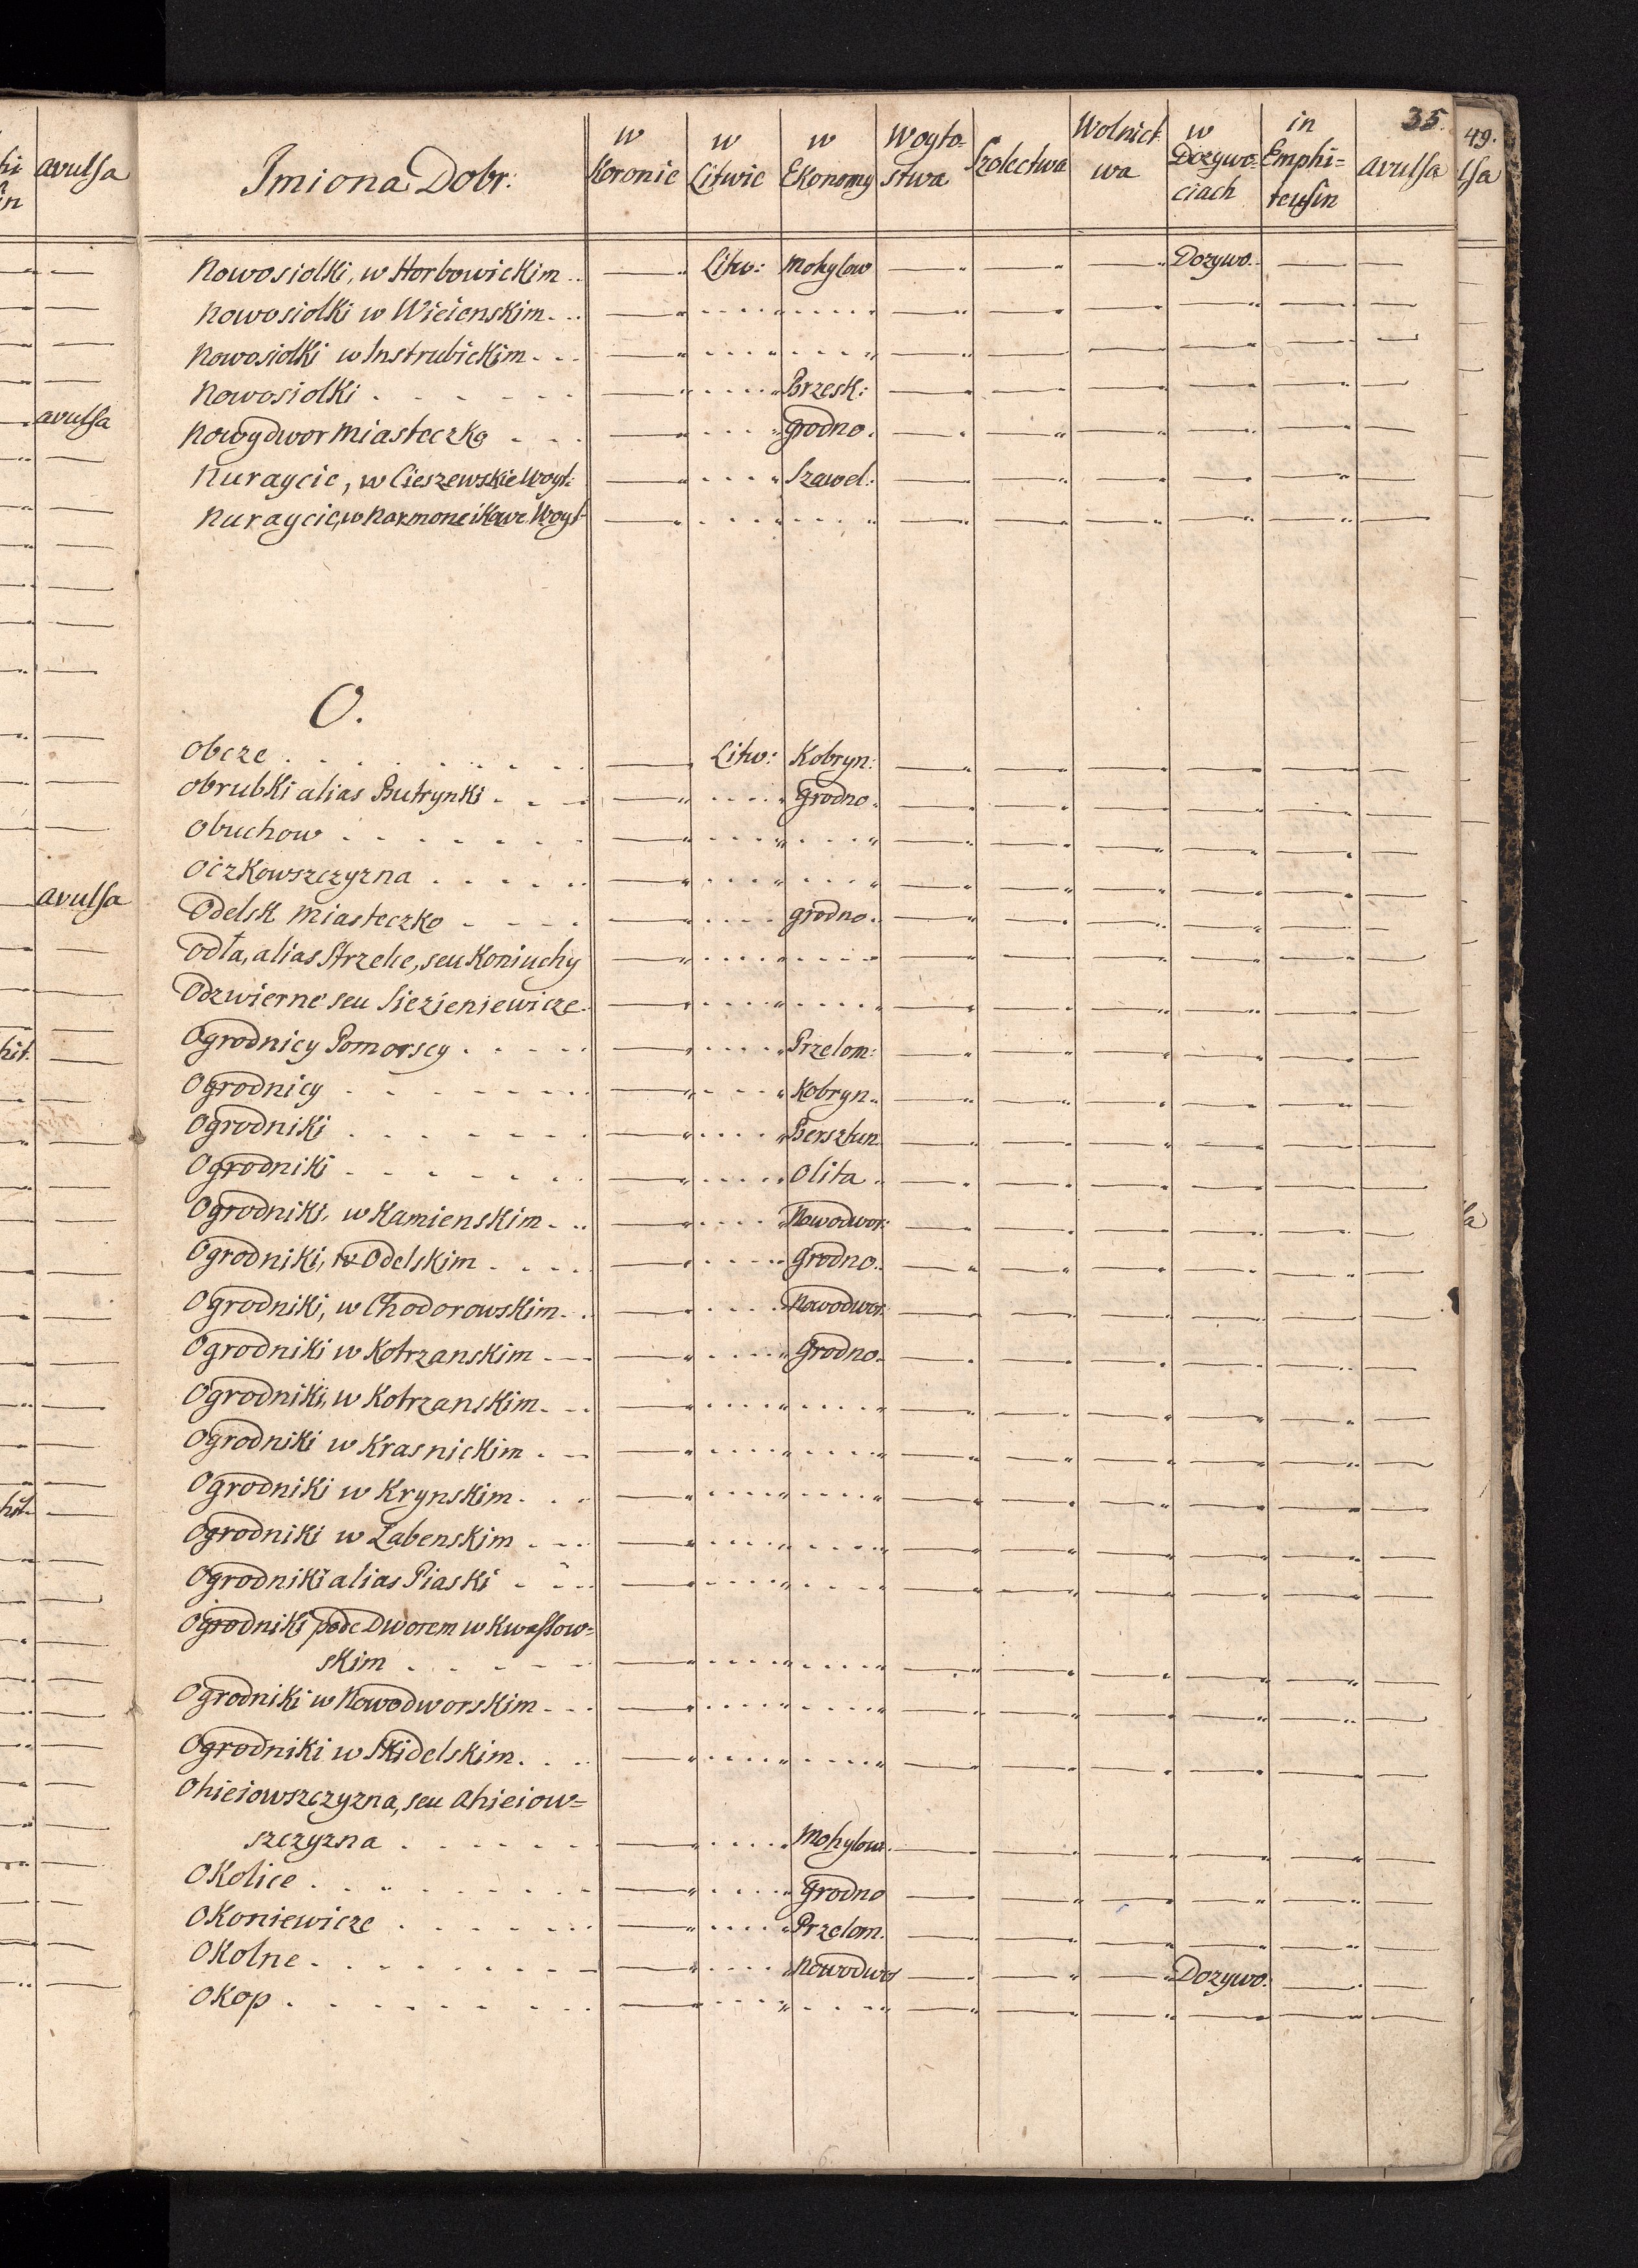 35.
Imiona Dobr: w Koronie w Litwie w Ekonomy Woyto-stwa Szolectwa Wolnict-wa w Dozywo-ciach in Emphi=teusin avulsa
Nowosiolki, w Horbowickim Litw: Mohylow Dozywo.
Nowosiolki w Wieienskim
Nowosiolki w Instrubickim
Nowosiolki Brzesk:
Nowydwor Miasteczko Grodno.
Nuraycie, w Cieszewskie Woyt: Szawel:
Nuraycie, w Narmoneikowe Woyt
O.
Obcze Litw: Kobryn:
Obrubki alias Butrynki Grodno.
Obuchow
Oczkowszczyzna
Odelsk Miasteczko grodno.
Odła, alias Strzelce, seu Koniuchy
Odzwierne seu Siezieniewicze
Ogrodnicy Pomorscy Przelom:
Ogrodnicy Kobryn.
Ogrodniki Bersztun.
Ogrodniki Olita
Ogrodniki, w Kamienskim Nowodwor:
Ogrodniki, w Odelskim Grodno.
Ogrodniki, w Chodorowskim Nowodwor.
Ogrodniki w Kotrzanskim Grodno.
Ogrodniki, w Kotrzanskim
Ogrodniki w Krasnickim
Ogrodniki w Krynskim
Ogrodniki w Łabenskim
Ogrodniki alias Piaski
Ogrodniki pode Dworem w Kwassow=
skim
Ogrodniki w Nowodworskim
Ogrodniki w Skidelskim
Ohieiowszczyzna, seu Ahieiow=
szczyzna Mohylow.
Okolice Grodno
Okoniewicze Przelom.
Okolne Nowodwor Dozywo.
Okop
avulsa
avulsa
avulsa
hit.
hit.
49.
lsa